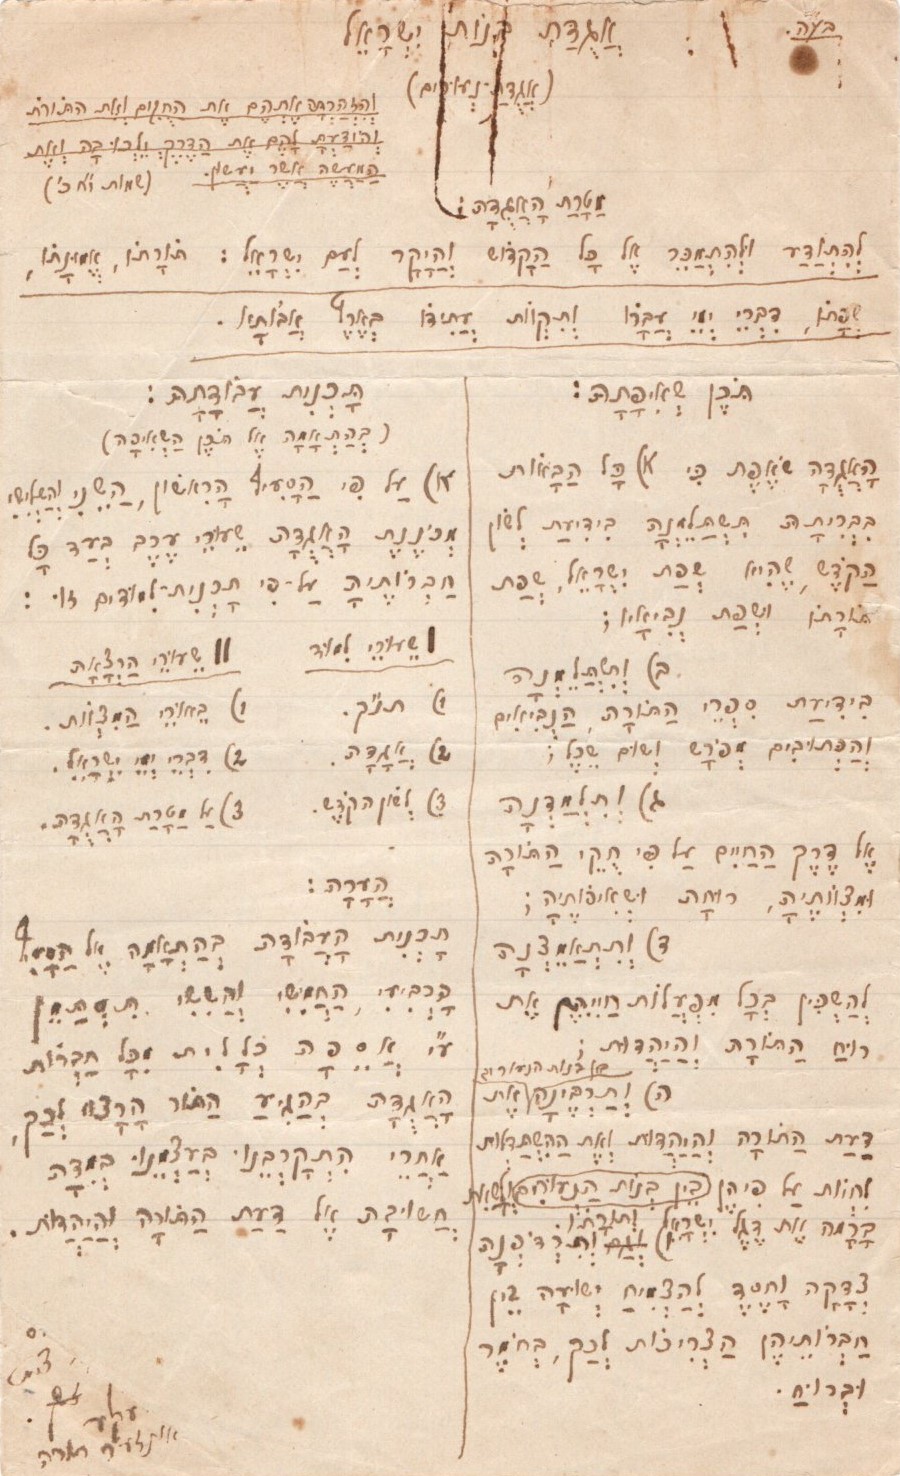 בע״ה.
אֲגֻדַּת בְּנוֹת יִשְׂרָאֵל
(אֲגֻדַּת-נְעוּרִים)
וְהִזְהַרְתָּה אֶתְהֶם אֶת הַחֻקִּים וְאֶת הַתּוֹרֹת
וְהוֹדַעְתָּ לָהֶם אֶת הַדֶּרֶךְ יֵלְכוּ בָהּ וְאֶת
הַמַּעֲשֶׂה אֲשֶׁר יַעֲשׂוּן. (שמות י״ח כ׳)
מַטְּרַת הָאֲגֻדָּה:
לְהִתְוַדַּע וּלְהִתְמַכֵּר אֶל כָּל הַקָּדוֹשׁ וְהַיָּקָר לְעַם יִשְׂרָאֵל: תּוֹרָתוֹ, אֱמוּנָתוֹ,
שְׂפָתוֹ, דִּבְרֵי יְמֵי עֲבָרוֹ וְתִקְוֹת עֲתִידוֹ בְּאֶרֶץ אֲבוֹתָיו.
תֹּכֶן שְׁאִיפָתָהּ:
הָאֲגֻדָּה שׁוֹאֶפֶת כִּי א) כָּל הַבָּאוֹת
בִּבְרִיתָהּ תִּשְׁתַּלֵּמְנָה בִּידִיעַת לְשׁוֹן
הַקֹּדֶשׁ, שֶׁהִיא שְׂפַת יִשְׂרָאֵל, שְׂפַת
תּוֹרָתוֹ וּשְׂפַת נְבִיאָיו;
ב) וְתִשְׁתַּלֵּמְנָה
בִּידִיעַת סִפְרֵי הַתּוֹרָה, הַנְּבִיאִים
וְהַכְּתוּבִים מְפֹרָשׁ וְשׂוֹם שֵׂכֶל;
ג) וְתִלְמַדְנָה
אֶל דֶּרֶךְ הַחַיִּים עַל פִּי חֻקֵּי הַתּוֹרָה
וּמִצְוֹתֶיהָ, רוּחָהּ וּשְׁאִיפוֹתֶיהָ;
ד) וְתִתְאַמֵּצְנָה
לְהַשְׁכִּין בְּכָל מִפְעֲלוֹת חַיֵּיהֶן אֶת
רוּחַ הַתּוֹרָה וְהַיַהֲדוּת;
בין בנות הנעורים
ה) וְתַרְבֶּינָה אֶת
דַּעַת הַתּוֹרָה וְהַיַהֲדוּת וְאֶת הַהִשְׁתַּדְּלוּת
לִחְיוֹת עַל פִּיהֶן (בֵּין בְּנוֹת הַנְּעוּרִים) וְלָשֵׂאת
בָּרָמָה אֶת דֶּגֶל יִשְׂרָאֵל וְתוֹרָתוֹ.
ו) וְגַם וְתִרְדֹּפְנָה
צְדָקָה וָחֶסֶד לְהַצְמִיחַ יְשׁוּעָה בֵּין
חַבְרוֹתֵיהֶן הַצְּרִיכוֹת לְכַךְ, בְּחֹמֶר
וּבְרוּחַ.
תָּכְנִית עֲבוֹדָתָהּ:
(בְּהַתְאָמָה אֶל תֹּכֶן הַשְּׁאִיפָה)
א) עַל פִּי הַסָּעִיף הָרִאשׁוֹן, הַשֵּׁנִי וְהַשְּׁלִישִׁי
מְכוֹנֶנֶת הָאֲגֻדָּה שִׁעוּרֵי עֶרֶב בְּעַד כָּל
חַבְרוֹתֶיהָ עַל-פִּי תָּכְנִית-לִמּוּדִים זוֹ:
I שִׁעוּרֵי לִמּוּד
1) תנ״ך.
2) אַגָּדָה.
3) לְשׁוֹן הַקֹּדֶשׁ.
II שִׁעוּרֵי הַרְצָאָה
1) בֵּאוּרֵי הַמִּצְוֹת.
2) דִּבְרֵי יְמֵי יִשְׂרָאֵל.
3) עַל מַטְּרַת הָאֲגֻדָּה.
הֶעָרָה:
תָּכְנִית הָעֲבוֹדָה בְּהַתְאָמָה אֶל הַסָּעִיף
הָרְבִיעִי, הַחֲמִישִׁי וְהַשִּׁשִּׁי תִּסְתַּמֵּן
ע״י אֲסֵפָה כְּלָלִית מִכָּל חַבְרוֹת
הָאֲגֻדָּה בְּהַגִּיעַ הַתּוֹר הָרָצוּי לְכַךְ,
אַחֲרֵי הִתְקָרְבֵנוּ בְּעַצְמֵנוּ בְּמִדָּה
חֲשׁוּבָה אֶל דַּעַת הַתּוֹרָה וְהַיַהֲדוּת.